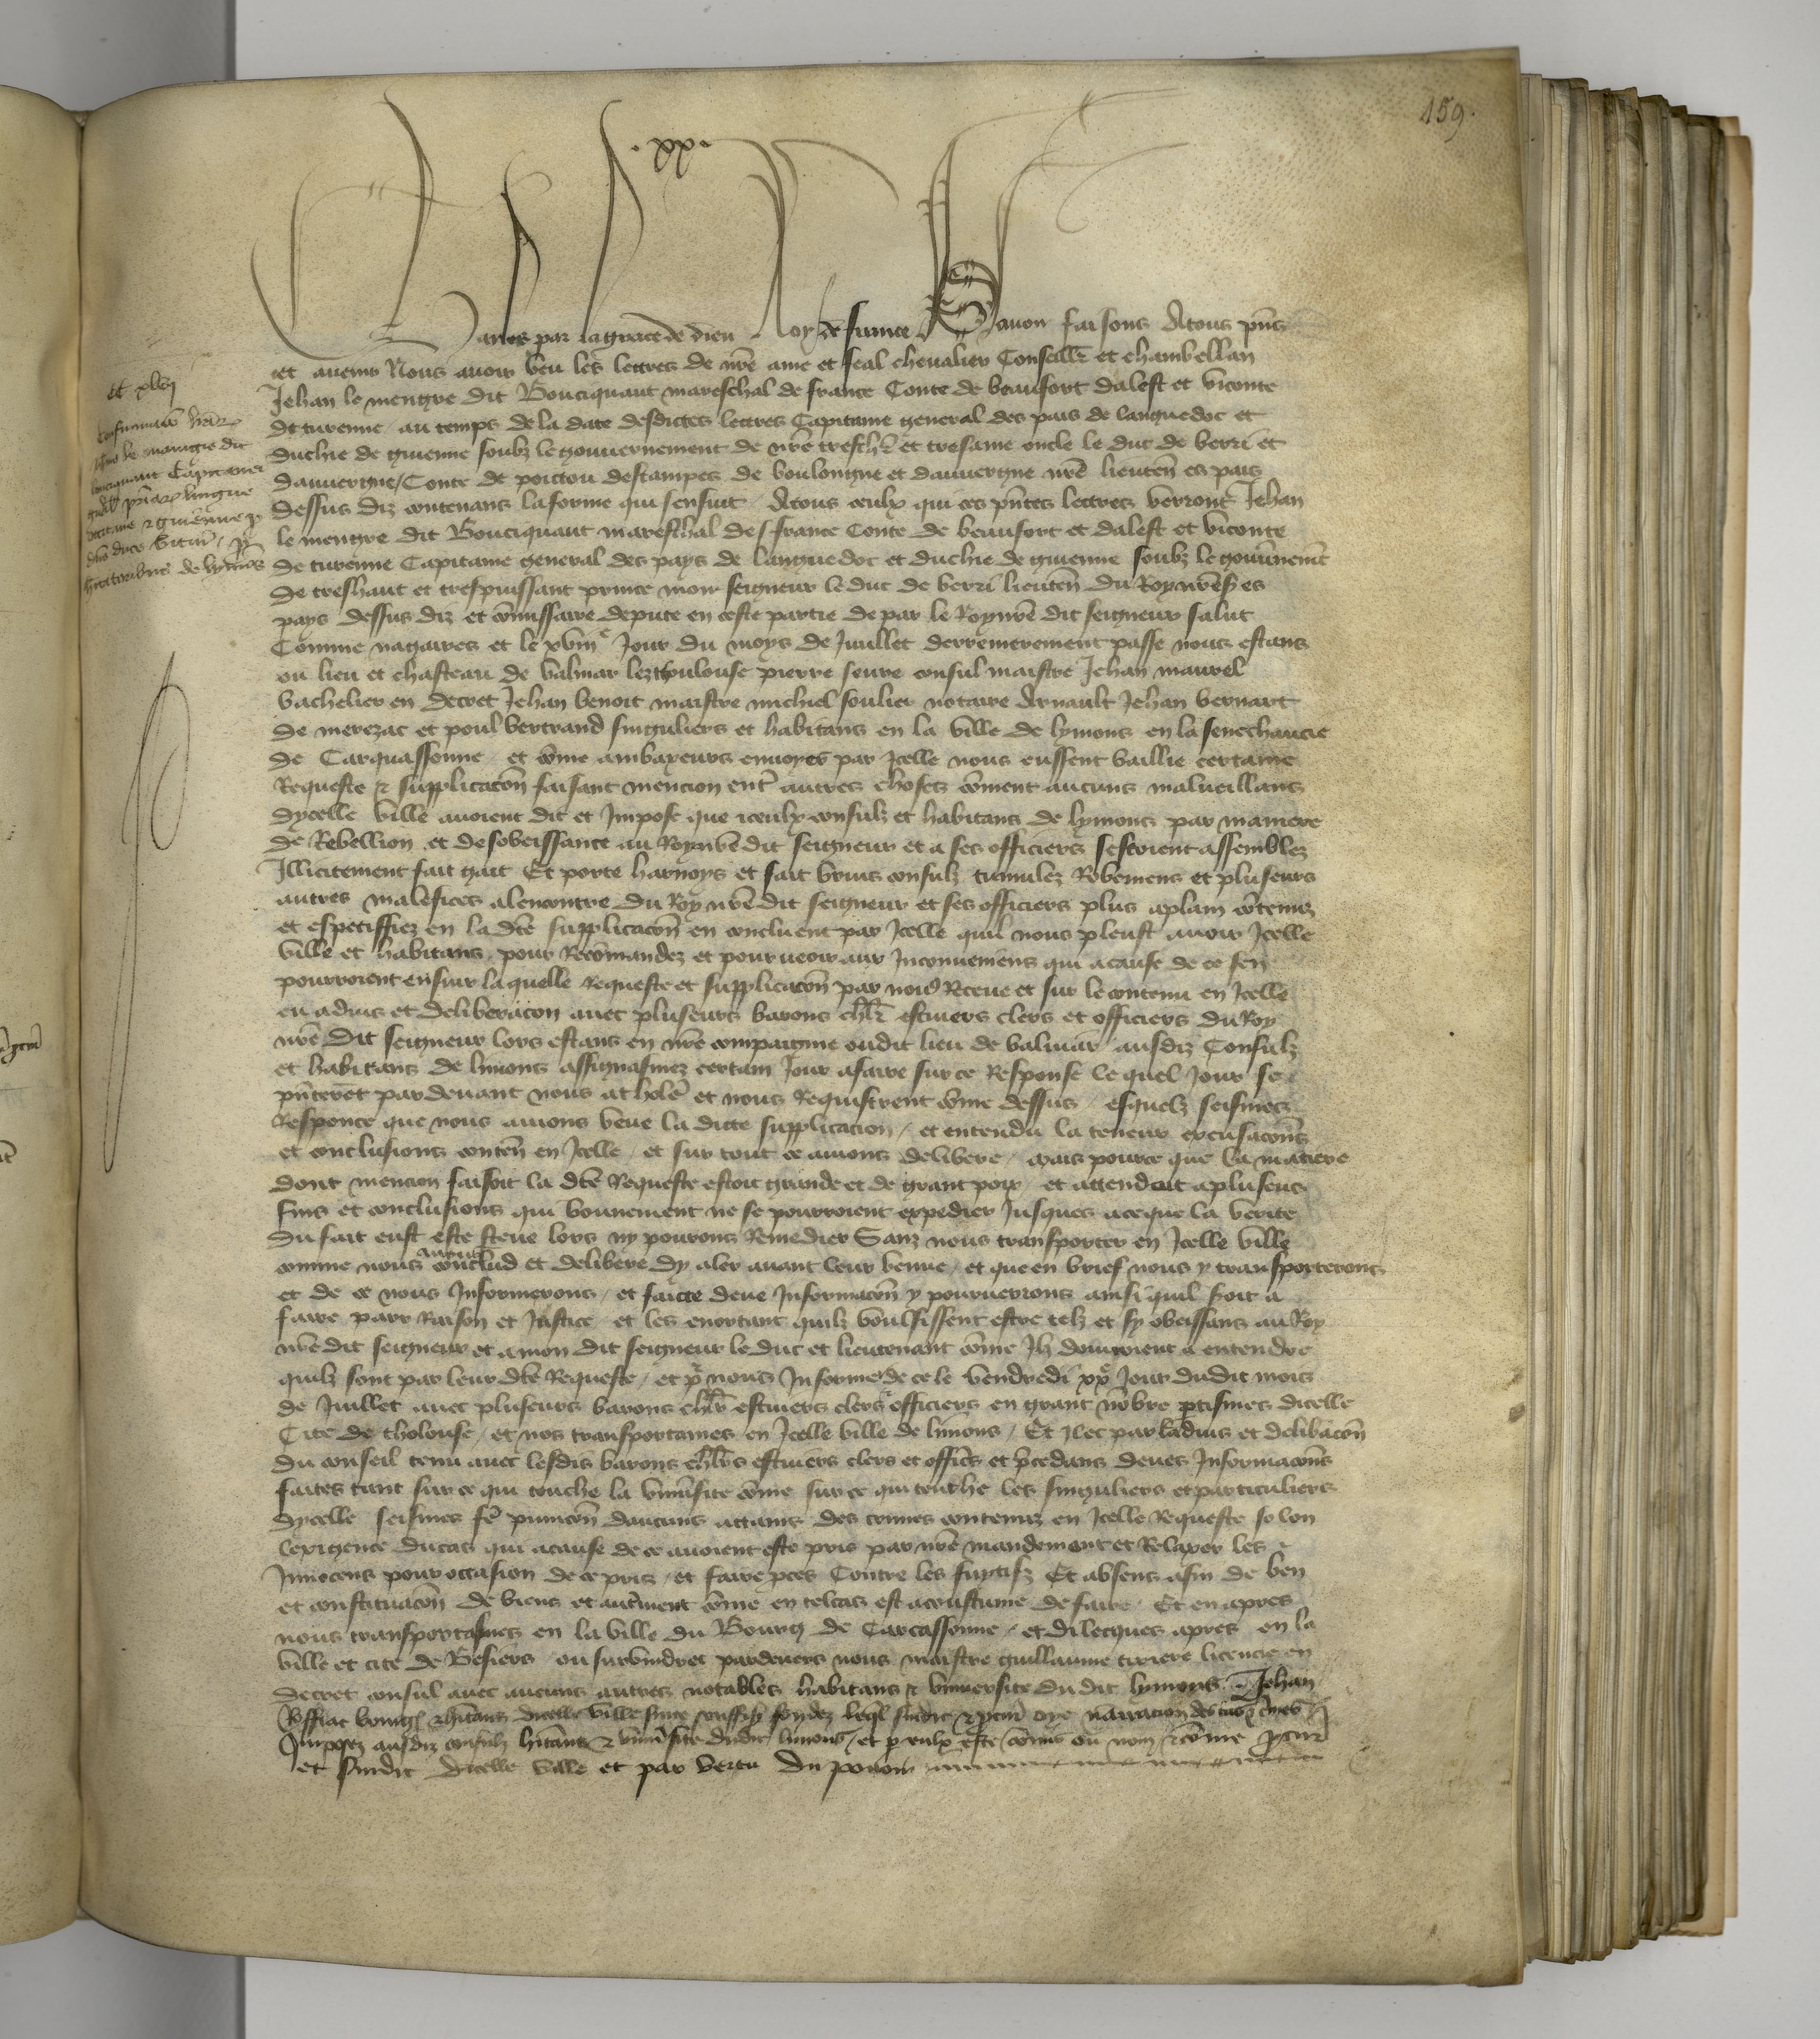 159.
.xx.
Charles par la grace de dieu Roy de france Savoir faisons Atous pñs
et avenir Nous avoir veu les lettres de nrē ame et feal chevalier Conseillr et chambellan
Jehan le mengre dit Bouciquaut mareschal de france Conte de beaufort dalest et viconte
de turenne au temps de la date desdictes lettres Capitaine general des pais de languedoc et
duchie de guienne soubz le gouvernement de nrē treschr et tresame oncle le duc de berri et
dauvergne / Conte de poictou destampes de boulongne et dauvergne nrē lieuteñ es pais
dessus diz contenans la forme qui sensuit Atous ceulx qui ces pñtes lettres verront Jehan
le mengre dit Bouciquaut mareschal de france Conte de beaufort et dalest et viconte
de turenne Capitaine general des pays de languedoc et duchie de guienne soubz le gouvnemēt
de treshaut et trespuissant prince monseigneur le duc de berri lieuteñ du Roy nrē s es
pays dessus diz et cōmissaire depute en ceste partie de par le Roy nrē dit seigneur salut
Comme nagaires et le xviiie Jour du moys de Juillet derrenierement passe nous estans
ou lieu et chasteau de balmar lez thoulouse pierre seure consul maistre Jehan maurel
bachelier en decret Jehan benoit maistre michiel soulier notaire Arnault Jehan bernart
de merezac et poul bertrand singuliers et habitans en la ville de lymons en la seneschaucie
de Carquassonne et cōme ambaxeurs envoyes par Jcelle nous eussent baillie certaine
Requeste & supplicacōn faisant mencion entr autres choses cōment aucuns malveillans
dycelle ville avoient dit et Jmpose que iceulx consulz et habitans de lymons par maniere
de Rebellion et desobeissance au Roy nrē dit seigneur et a ses officiers sestoient assemblez
Jllicitement fait gait Et porte harnoys et fait bruis consulz tumulez Robemens et pluseurs
autres malefices alencontre du Roy nrē dit seigneur et ses officiers plus aplain cōtenuz
et especiffiez en la dtē supplicacōn en concluent par Jcelle quil nous pleust avoir Jcelle
ville et habitans pour Recōmandez et pourveoir aux Jnconveniens qui a cause de ce sen
pourroient ensuir la quelle Requeste et supplicacōn par nous Receue et sur le contenu en Jcelle
eu advis et deliberacion avec pluseurs barons chlrs escuiers clers et officiers du Roy
nrē dit seigneur lors estans en nrē compaignie oudit lieu de balmar ausdiz Consulz
et habitans de limons assignasmez certain Jour a faire sur ce Response le quel Jour se
pñterēt par devant nous a tholē et nous Requistrent cōme dessus esquelz feismes
Responce que nous avions veue la dicte supplicacion et entendu la teneur excusacōns
et conclusions conteñ en Jcelle et sur tout ce avions delibere mais pource que la matiere
dont mencion faisoit la dtē Requeste estoit grande et de grant poix et attendoit a pluseurs
fins et conclusions qui bonnement ne se pourroient expedier Jusques a ce que la verite
du fait eust este sceue lors ny pourons Remedier Sanz nous transporter en Jcelle ville
comme nous avens conclud et delibere dy aler avant leur venue et que en brief nous y transporterons
et de ce nous Jnformerons et faicte deue Jnformacōn y pourverrons ainsi quil soit a
faire par Raison et Justice et les enortant quilz voulsissent estre telz et sy obeissans au Roy
nrē dit seigneur et a mon dit seigneur le duc et lieutenant cōme Jlz donnoient a entendre
quilz sont par leur dtē Requeste et pr nous Jnformer de ce le vendredi xxe Jour dudit mois
de Juillet avec pluseurs barons chlrs escuiers clers & officiers en grant nōbre ptismes dicelle
Cite de tholouse et nos transportames en Jcelle ville de limons Et Jlec par ladvis et delibacōn
du conseil tenu avec lesdis barons chlrs escuiers clers et offics et precedans deues Jnformacōns
faites tant sur ce qui touche la univsite cōme sur ce qui touche les singuliers et particuliers
dycelle feismes fē punicōn daucuns attains des crimes contenuz en Jcelle Requeste se lon
lexigence du cas qui a cause de ce avoient este pris par nrē mandement et Relaxer les
Jnnocens pour occasion de ce pris et faire pces Contre les fuytifz Et absens afin de ben
et constituacōn de biens et autrment cōme en telcas est acoustume de faire Et en apres
nous transportasmes en la ville du Bourg de Carcassonne et dilecques apres en la
ville et cite de Besiers ou survindret pardevers nous maistre guillaume tixiere licencie en
decret consul avec aucuns autres notables habitans & université du dit lymons Jehan
Roffiac bourg & hitans dicelle ville
Jmposez ausdiz consulz hitans & univsite dudit limons et p eulx cōme
et sindic dicelle ville et par vertu du povoir